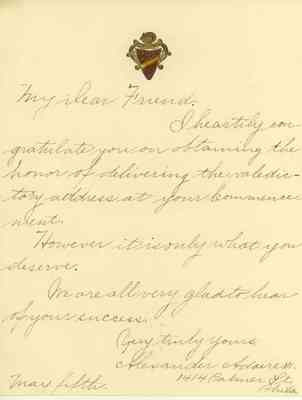 My Dear Friend.
I heartily con
gratulate you on obtaining the
honor of delivering the valedic-
tory address at your Commence
ment.
However it is only what you
deserve.
We are all very glad to hear
of your success.
Very truly yours
Alexander Adaire
1414 Palmer St
May fifth. Phila